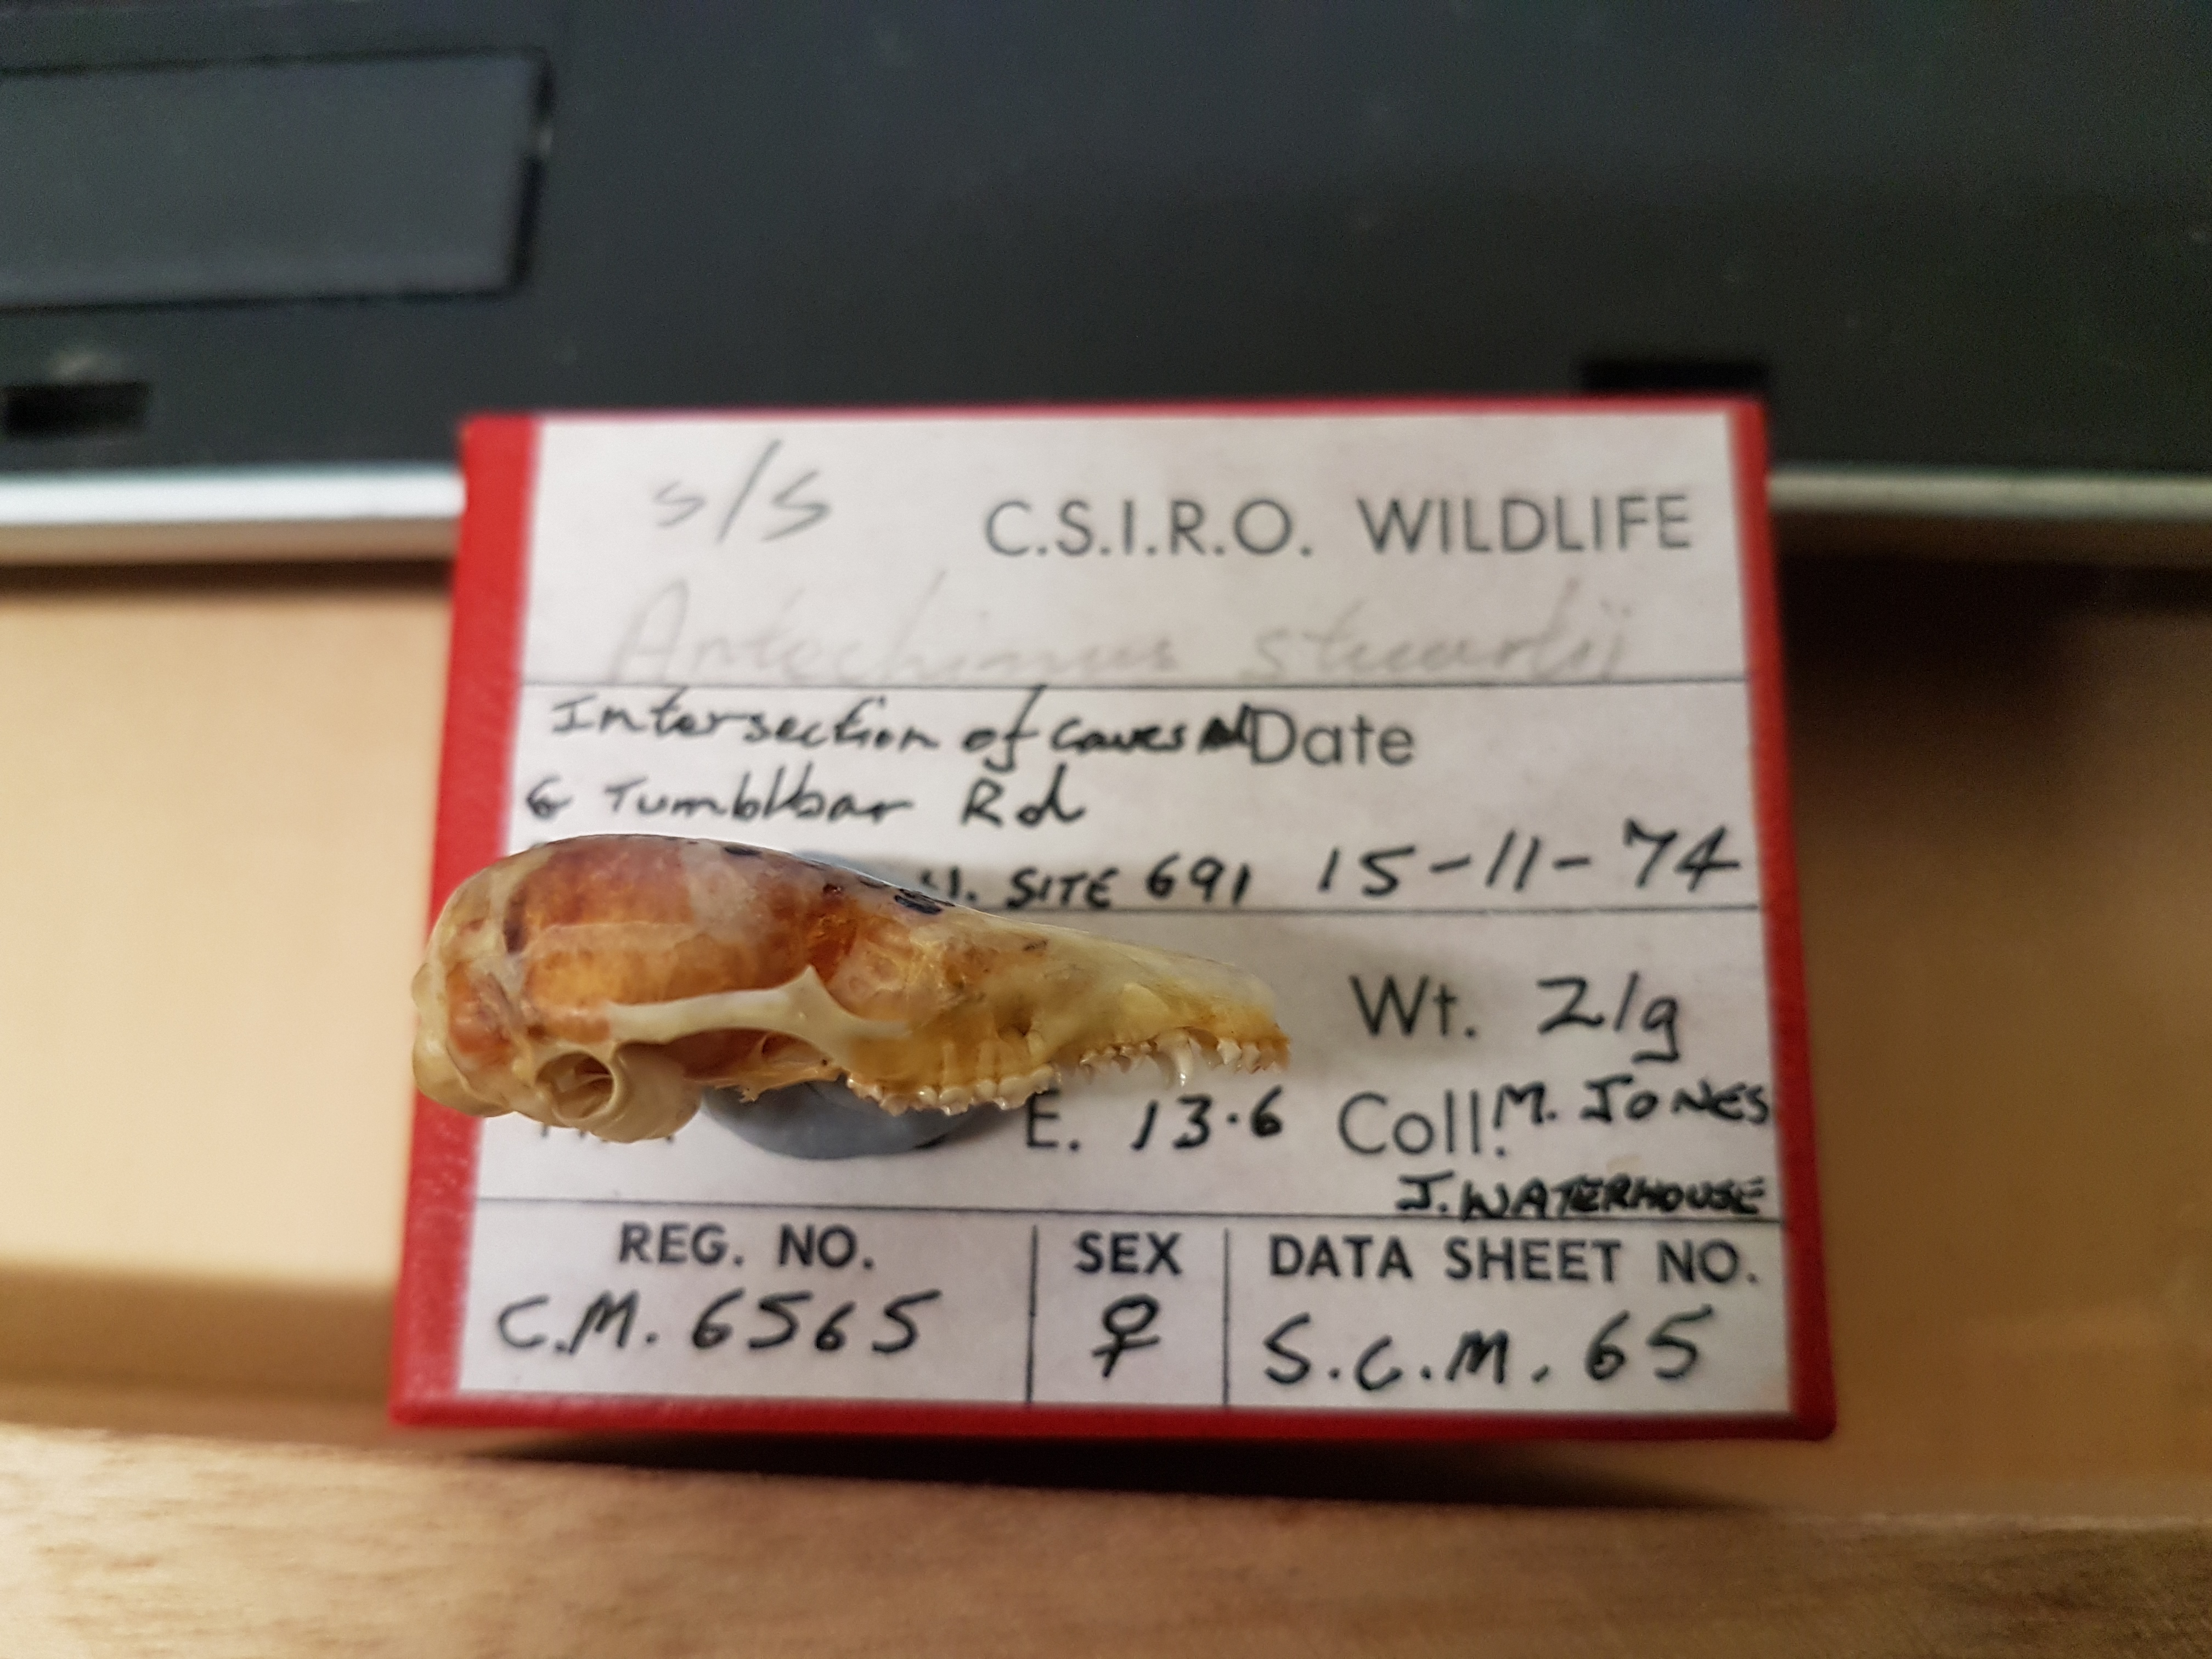 s/s C.S.I.R.O. WILDLIFE
Antechinus stuartii
Intersection of Caves Date
& Tumblbar Rd
SITE 691 15-11-74
Wt. 21g
E. 13.6 Coll. M. JONES
J. WATERHOUSE
REG. NO. SEX DATA SHEET NO.
C.M. 6565 ♀ S.C.M. 65